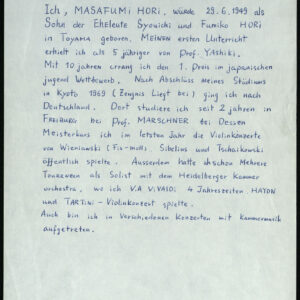 Ich, MASAFUMI HORI, würde 29.6.1949 als
Sohn der Eheleute Syouichi und Fumiko HORI
in Toyama geboren. MEINEN ersten Unterricht
erhielt ich als 5 jähriger von Prof. YASHIKI.
Mit 10 jahren errang ich den 1. Preis im japanischen
jugend Wettbewerb. Nach Abschluss meines Studiums
in Kyoto 1969 (Zeugnis liegt bei) ging ich nach
Deutschland. Dort studiere ich seit 2 jahren in
FREIBURG bei Prof. MARSCHNER bei Dessen
Meisterkurs ich im letzten Jahr die Violinkonzerte
von Wieniawski (Fis-moll) Sibelius und Tschaikowski
öffentlich spielte. Ausserdem hatte ich schon Mehrere
TOURNEEN als Solist mit dem Heidelberger Kammer
orchestra, wo ich V.A VIVALDI 4 Jahreszeiten HAYDN
und TARTINI - Violinkonzert spielte.
Auch bin ich in Verschiedenen Konzerten mit Kammermusik
aufgetreten.